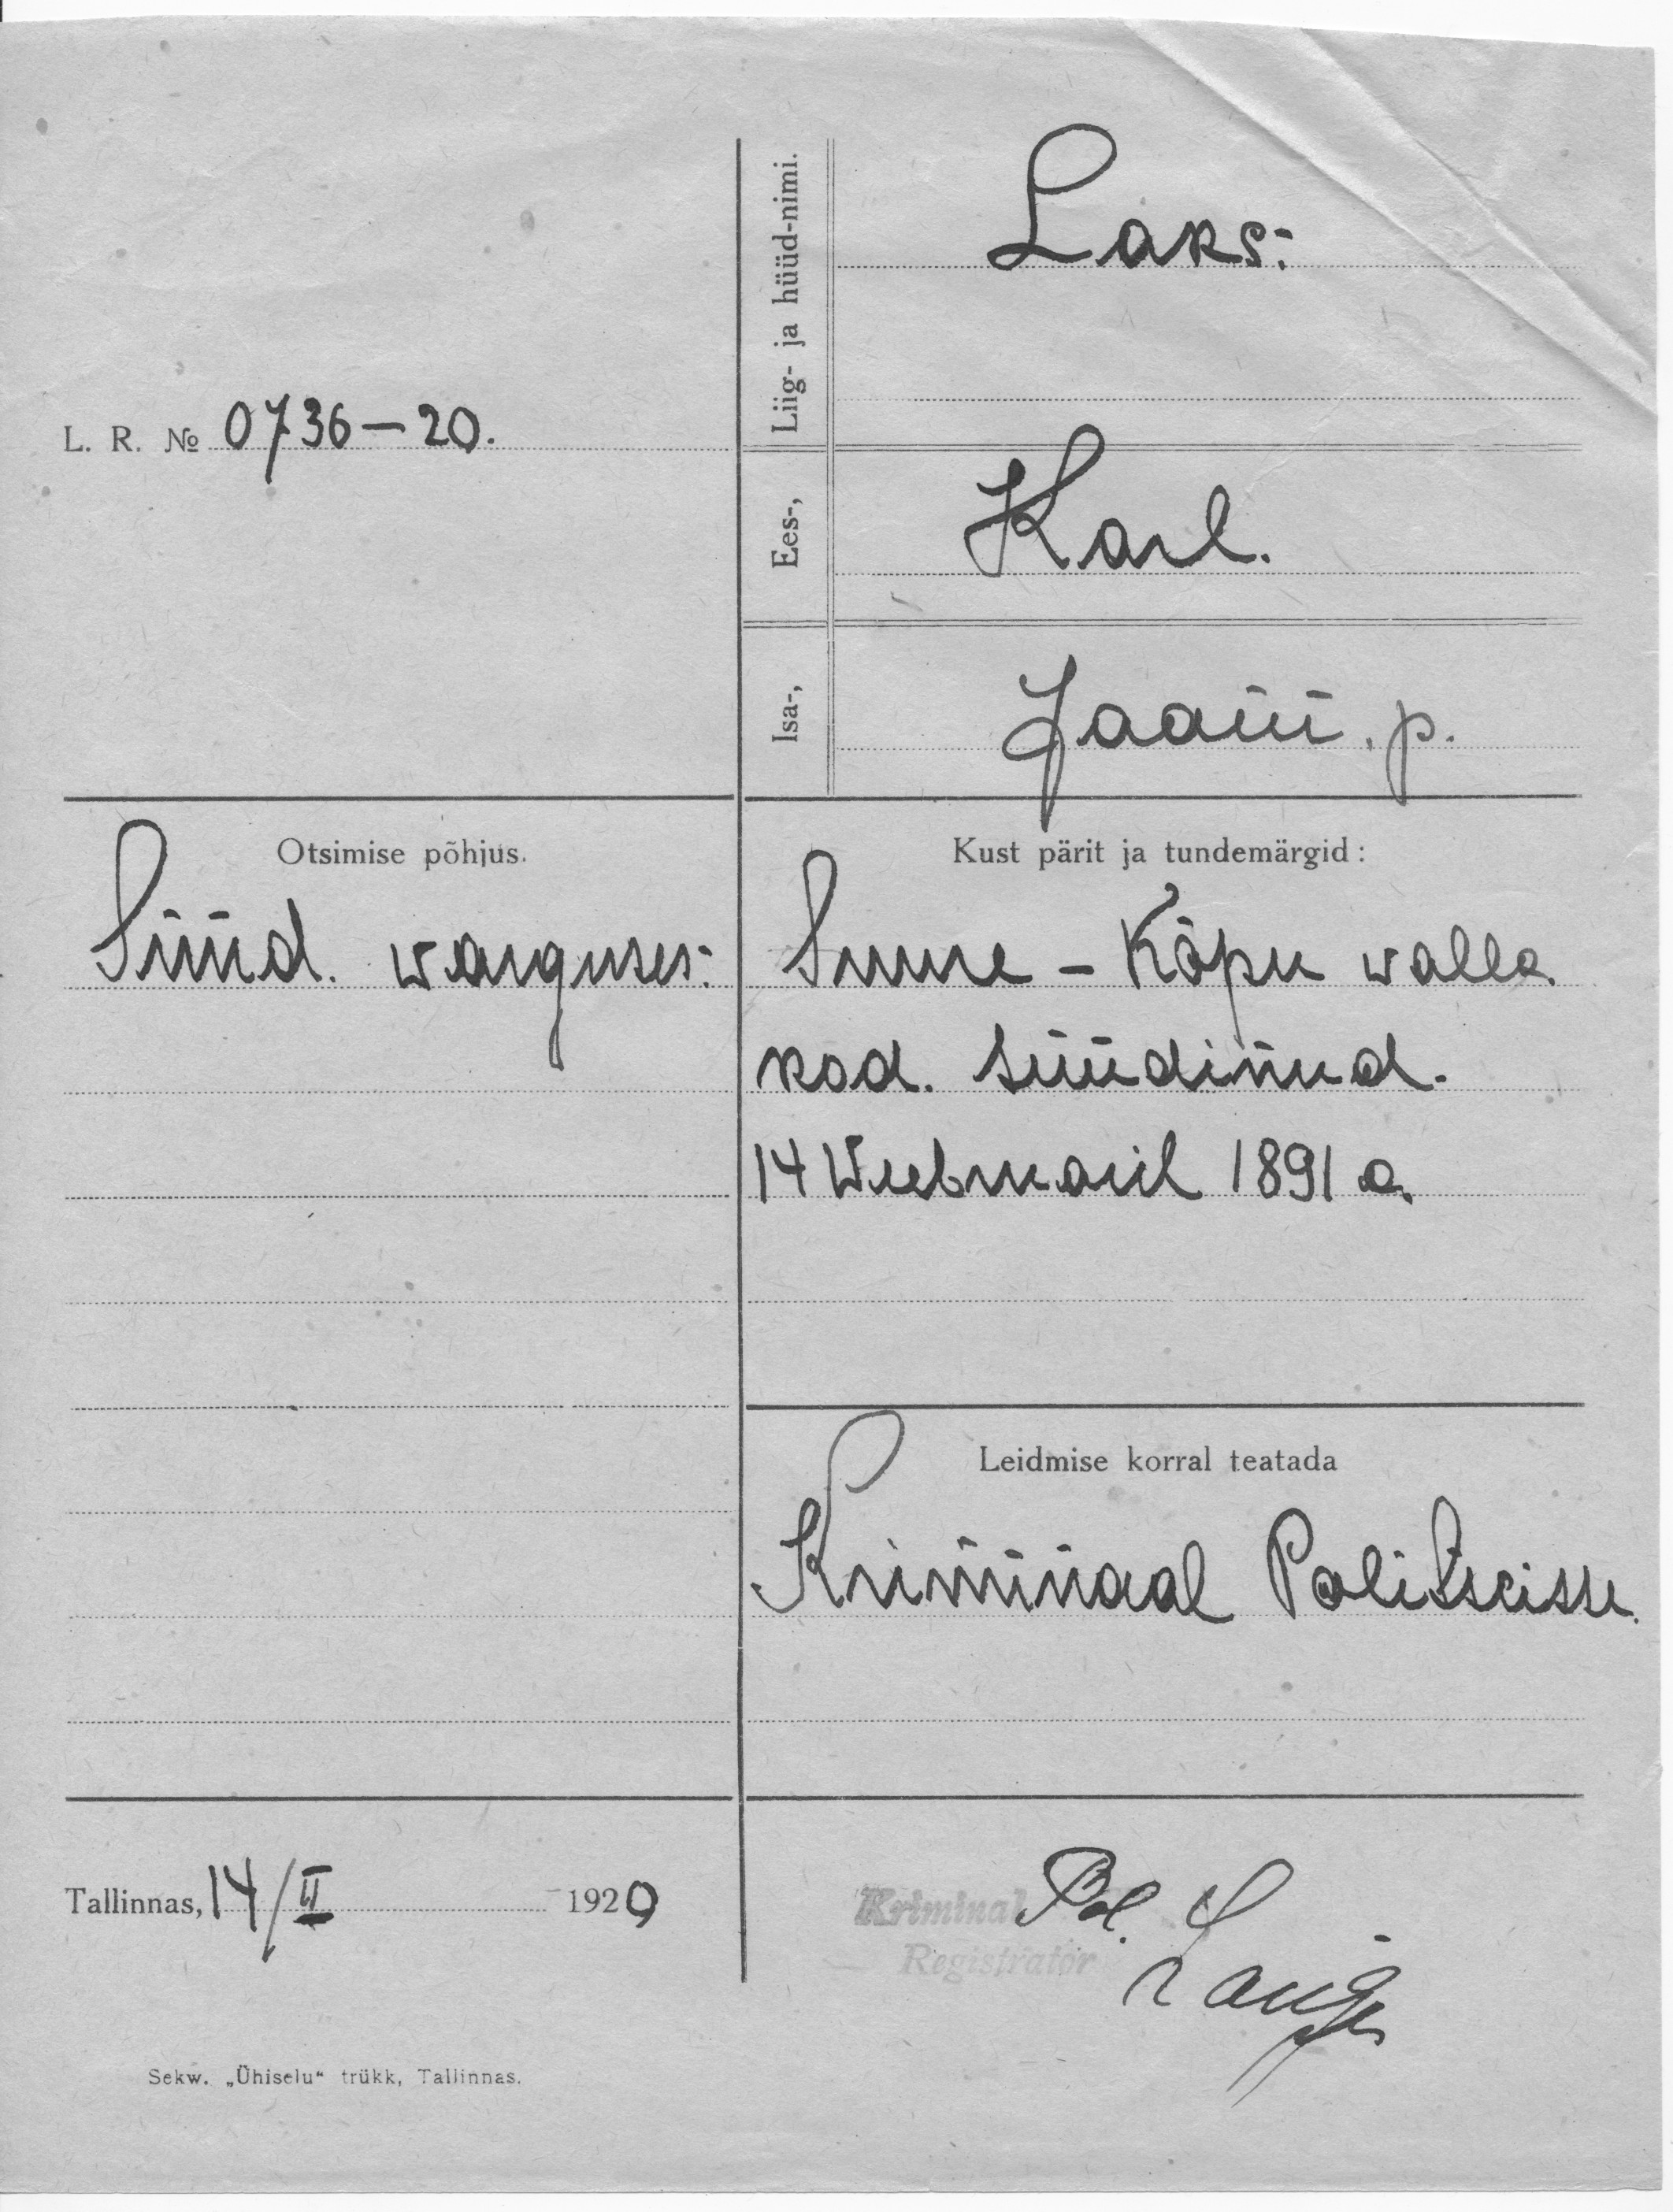 Liig- ja hüüd-nimi.
Laks:
L. R. № 0736—20.
Ees-,
Karl.
Isa-,
Jaani. p.
Otsimise põhjus.
Süüd. warguses:
Kust pärit ja tundemärgid:
Suure-Kõpu walla
kod. sündinud.
14 Weebruaril 1891 a.
Leidmise korral teatada
Kriminaal Politseisse.
Tallinnas, 14/II 1920
Kriminal Pol.
Registrator
Sekw. „Ühiselu“ trükk, Tallinnas.